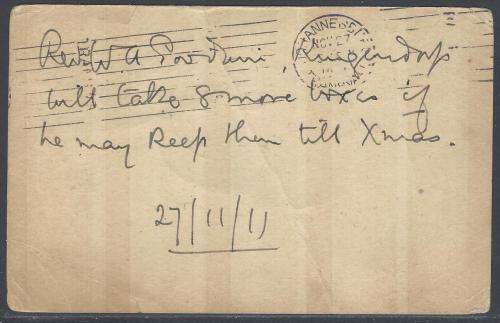 Rev W. A , Krugersdorp
will take 8 more boxes if
he may keep them till Xmas.
27/11/11
NOV 27